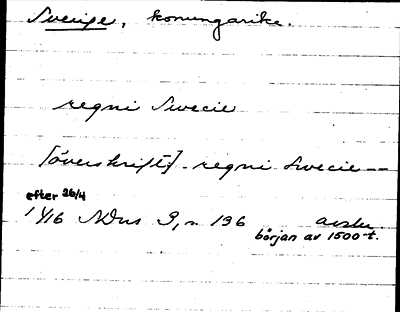 Sverige, konungarike.
regni Swecie
[överskrift] - regni Swecie --
efter 26/4
1416 NDns 3, n 136 avskr.
början av 1500-t.